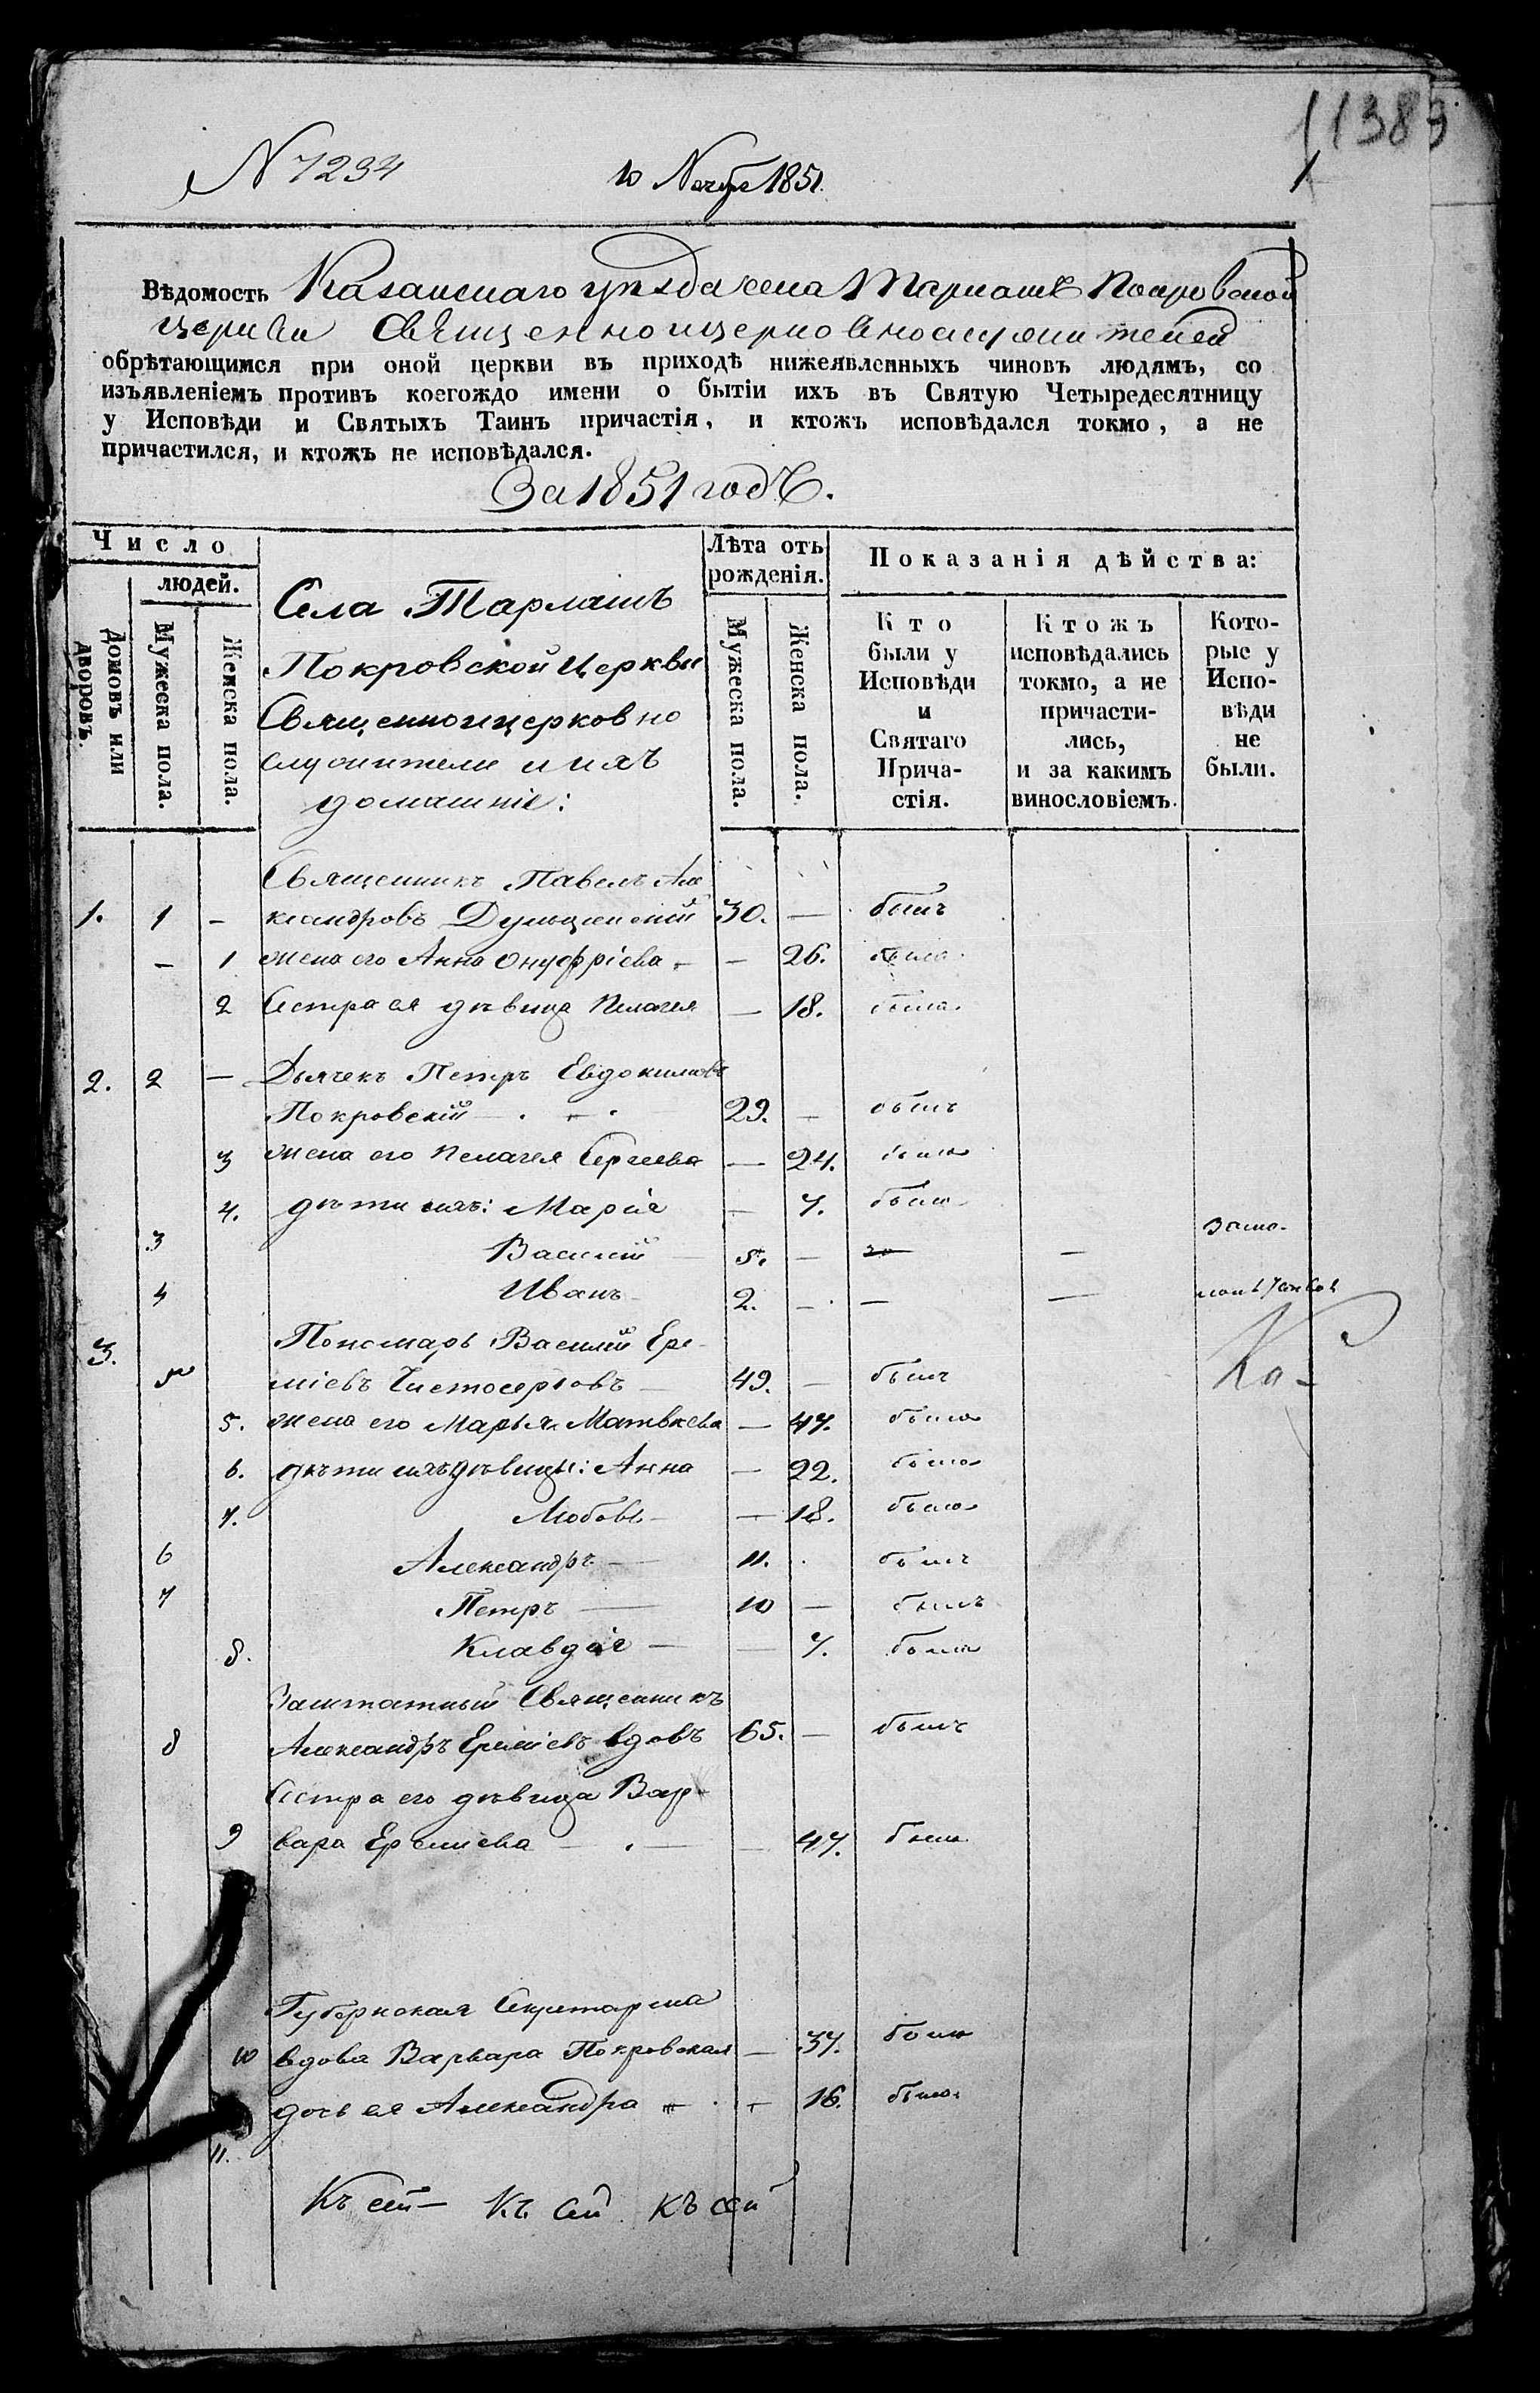 11383
N 7234
10 Ноября 1851.
Вѣдомость Казанскаго уѣзда села Тарлашъ Покровской
церкви Священноицерковнослужителей
обрѣтающимся при оной церкви въ приходѣ нижеявленныхъ чиновъ людямъ, со
изъявленіемъ противъ коегождо имени о бытіи ихъ въ Святую Четыредесятницу
у Исповѣди и Святыхъ Таинъ причастія, и ктожъ исповѣдался токмо, а не
причастился, и ктожъ не исповѣдался.
За 1851 годъ.
Число
людей.
Домовъ или дворовъ.
Мужеска пола.
Женска пола.
Села Тарлашъ
Покровской Церкви
Священноицерковно
служители и ихъ
домашніе:
Лѣта отъ
рожденія.
Мужеска пола.
Женска пола.
Показанія дѣйства:
Кто
были у
Исповѣди
и
Святаго
Прича-
стія.
Ктожъ
исповѣдались
токмо, а не
причасти-
лись,
и за какимъ
винословіемъ.
Кото-
рые у
Испо-
вѣди
не
были.
Священникъ Павелъ Але
1. 1 – ксандровъ 30. – былъ
– 1 жена его Анна Онуфріева – – 26. была
2 Сестра ея дѣвица Пелагея – 18. была.
2. 2 – Дьячекъ Петръ Евдокимовъ
Покровскій 29. – былъ
3 жена его Пелагея Сергеева – 24. была
4. дѣти ихъ: Марія – 7. была
За мо-
3 Василій – 5. – –
4 Иванъ 2. – – –
3. Пономарь Василій Ере-
5 міевъ Чистосердовъ – 49. – былъ
Ка-
5. жена его Марья Матвѣева – 47. была
6. дѣти ихъ дѣвицы: Анна – 22. была
7. Любовь – – 18. была
6 Александръ – 11. былъ
7 Петръ – 10 – былъ
8. Клавдія – – 7. была
Заштатный Священникъ
8 Александръ Ереміевъ вдовъ 65. – былъ
Сестра его дѣвица Вар-
9 вара Ереміева – – – 47. была
Губернская Секретарша
10 вдова Варвара Покровская – 37. была
дочь ея Александра – 16. была
11.
Къ сей – Къ сей къ сей